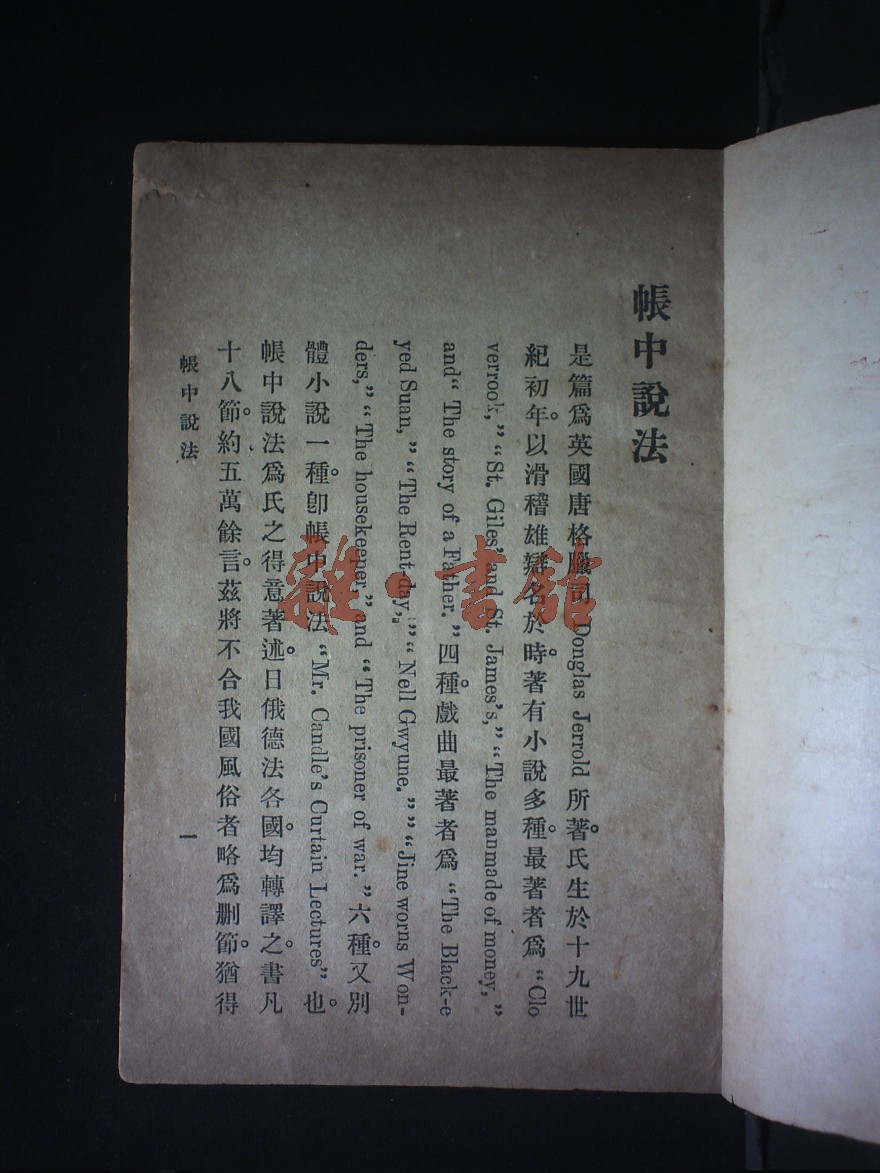 帳中說法
是篇爲英國唐格臘司 Donglas Jerrold 所著。氏生於十九世
紀初年。以滑稽雄辯名於時。著有小說多種。最著者爲 “Clo
verrook,” “St. Giles’ and St. James’s,” “The manmade of money,”
and “The story of a Father.” 四種。戲曲最著者爲 “The Black-e
yed Suan,” “The Rent-day,” “Nell Gwyune.” “Jine worns Won-
ders,” “The housekeeper,” and “The prisoner of war.” 六種。又別
體小說一種。卽帳中說法 “Mr. Candle’s Curtain Lectures” 也。
帳中說法爲氏之得意著述。日俄德法各國。均轉譯之。書凡
十八節。約五萬餘言。茲將不合我國風俗者略爲刪節。猶得
帳中說法
一
雜·書館